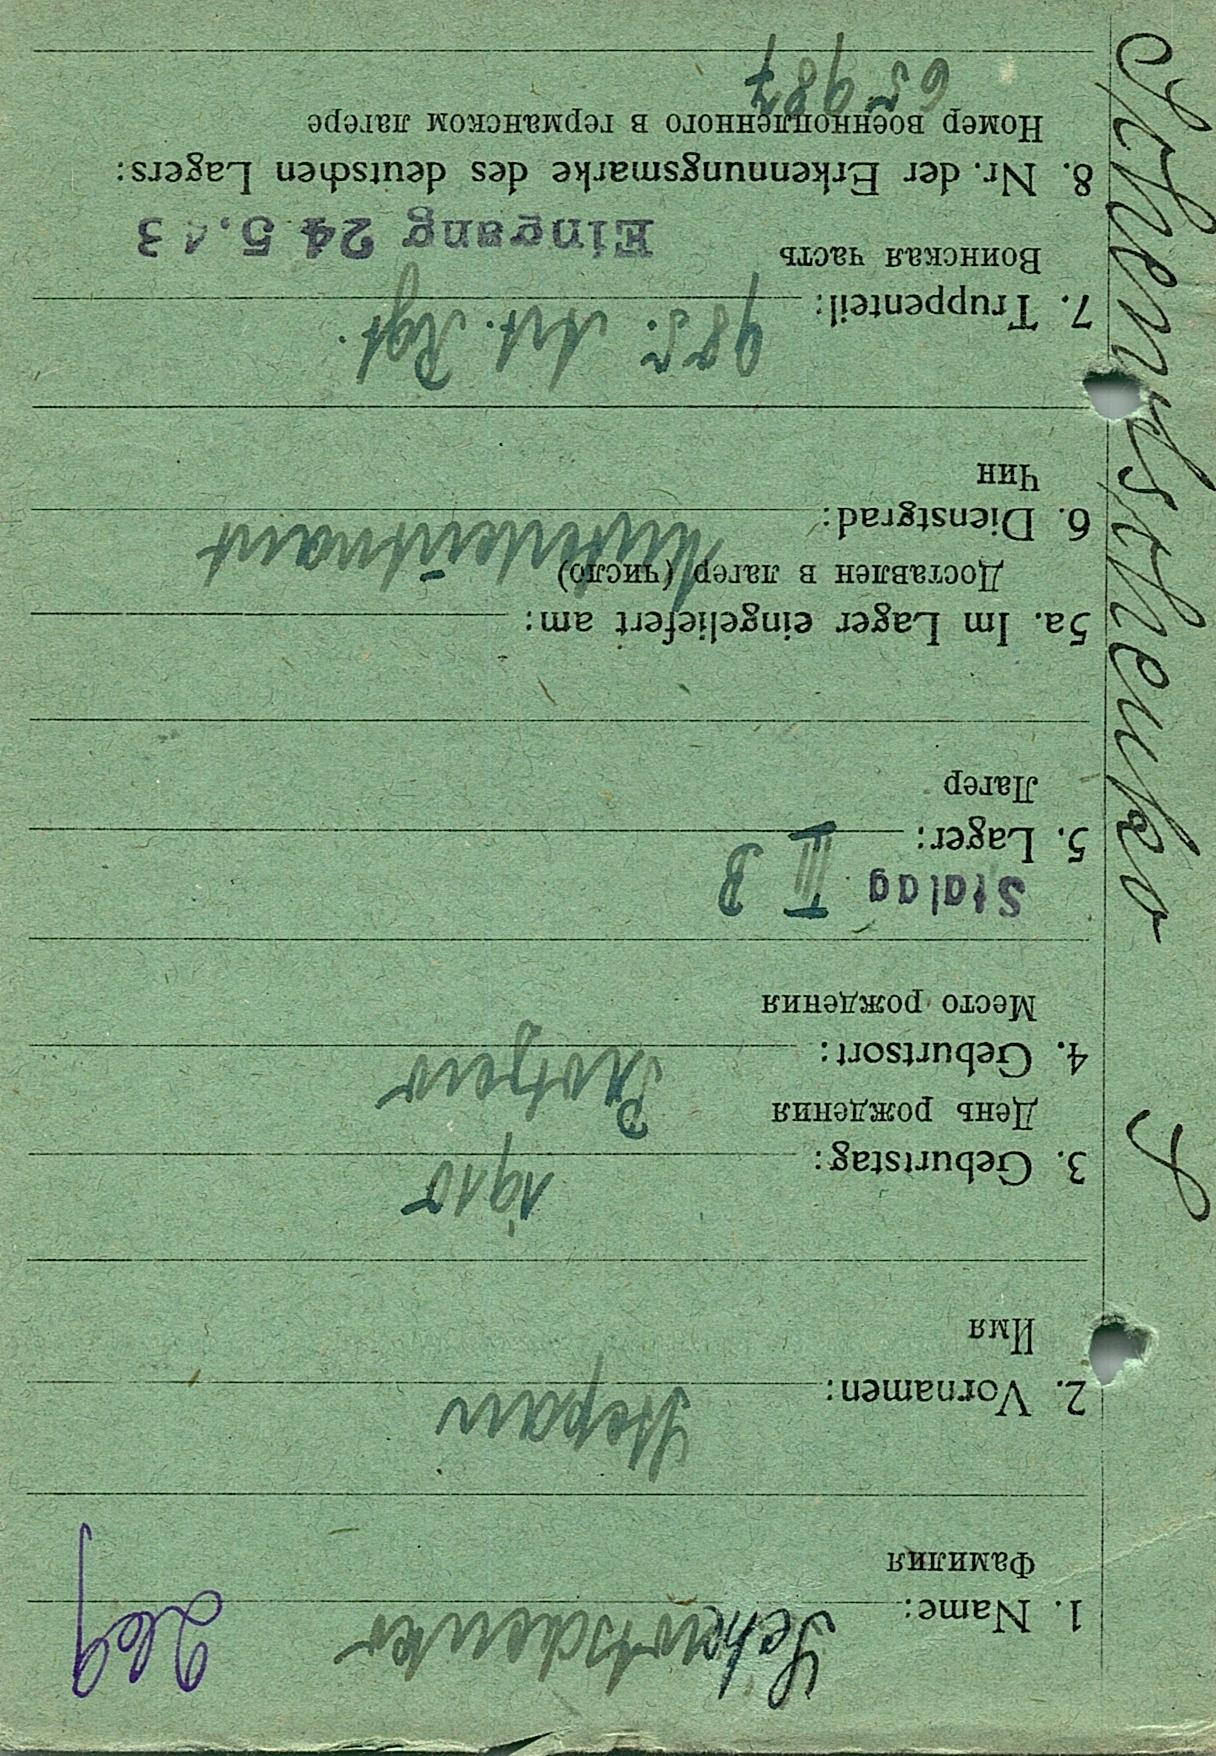 269
1. Name: Schewtschenko
Фамилия
2. Vornamen: Stepan
Имя
3. Geburtstag: 1910
День рождения
4. Geburtsort:
Место рождения
Stalag III B
5. Lager:
Лагер
5a. Im Lager eingeliefert am:
Доставлен в лагер (число)
6. Dienstgrad: Unterleutnant
Чин
7. Truppenteil: 985. Art. Rgt.
Воинская часть
Eingang 24 5.43
8. Nr. der Erkennungsmarke des deutschen Lagers:
Номер военнопленного в германском лагере
65987
S